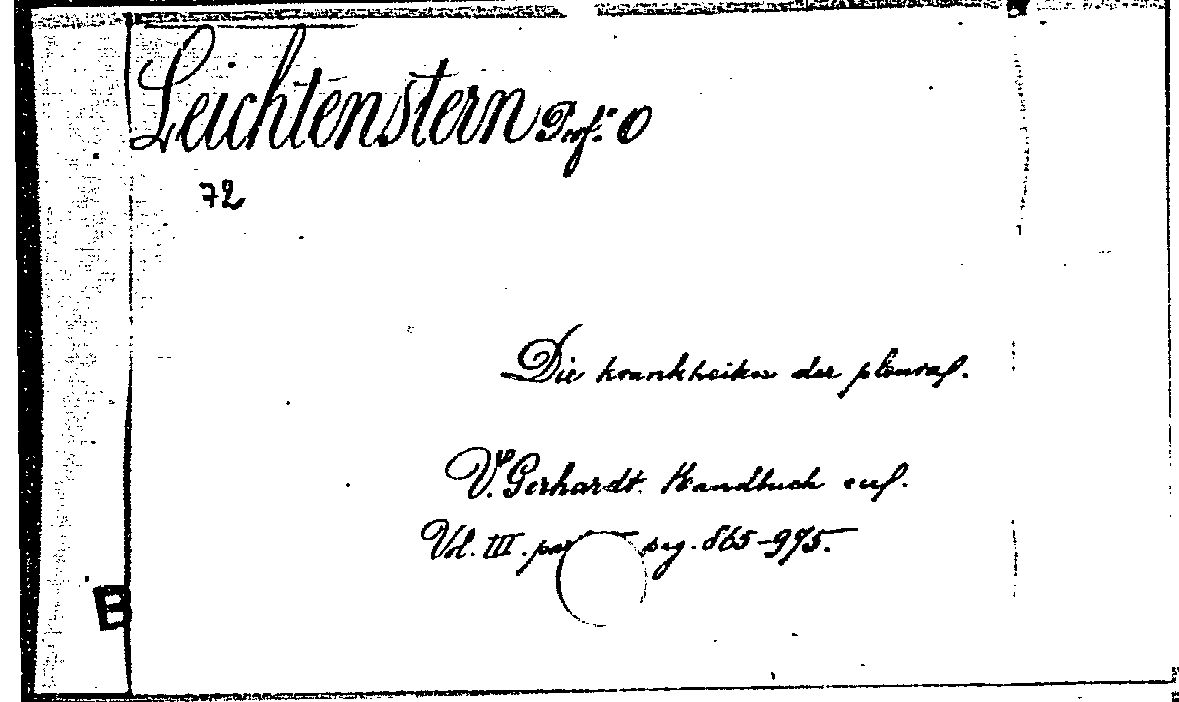 Leichtenstern Prof. O
72
Die krankheiten der pleura
V. Gerhardt. Handbuch
Vol. III. pag. 865-975.
B